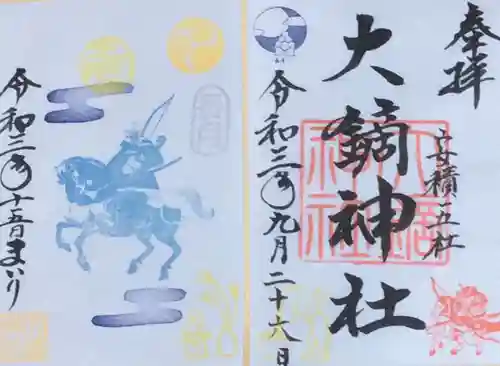 奉拝
安積五社
大鏑神社
令和三年九月二十六日
令和三年十五日まいり